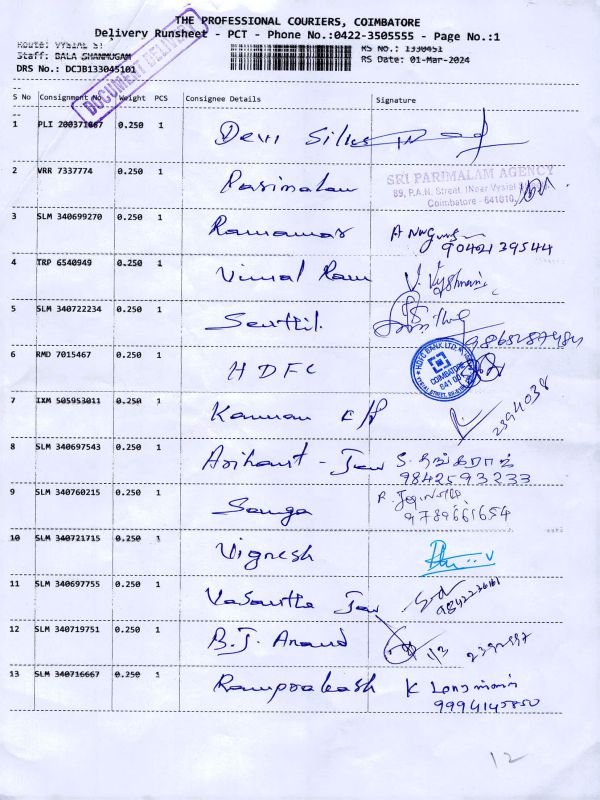 THE PROFESSIONAL COURIERS, COIMBATORE
Delivery Runsheet - PCT - Phone No.:0422-3505555 - Page No.:1
Route: VYSIAL ST
RS No.: 1330451
Staff: BALA SHANMUGAM
RS Date: 01-Mar-2024
DRS No.: DCJB133045101
DOCUMENT DELIVERY
S No Consignment No Weight PCS Consignee Details Signature
1 PLI 200371067 0.250 1 Devi Silks
2 VRR 7337774 0.250 1 Parimalam SRI PARIMALAM AGENCY
89, P.A.N. Street, (Near Vysial
Coimbatore - 641010.
3 SLM 340699270 0.250 1 Ramamas
9042139544
4 TRP 6540949 0.250 1 Vimal Ram
5 SLM 340722234 0.250 1 Senthil.
6 RMD 7015467 0.250 1 HDFC HDFC BANK LTD. COIMBATORE
7 IXM 505953011 0.250 1 Kannan 2394038
8 SLM 340697543 0.250 1 Arihant - Jew S. தங்கராஜ்
9842593233
9 SLM 340760215 0.250 1 Sanga
9789661654
10 SLM 340721715 0.250 1 Vignesh
11 SLM 340697755 0.250 1 Vasantha Jew
12 SLM 340719751 0.250 1 B.J. Anand 1/3
13 SLM 340716667 0.250 1 Ramprakash K
9994145850
12